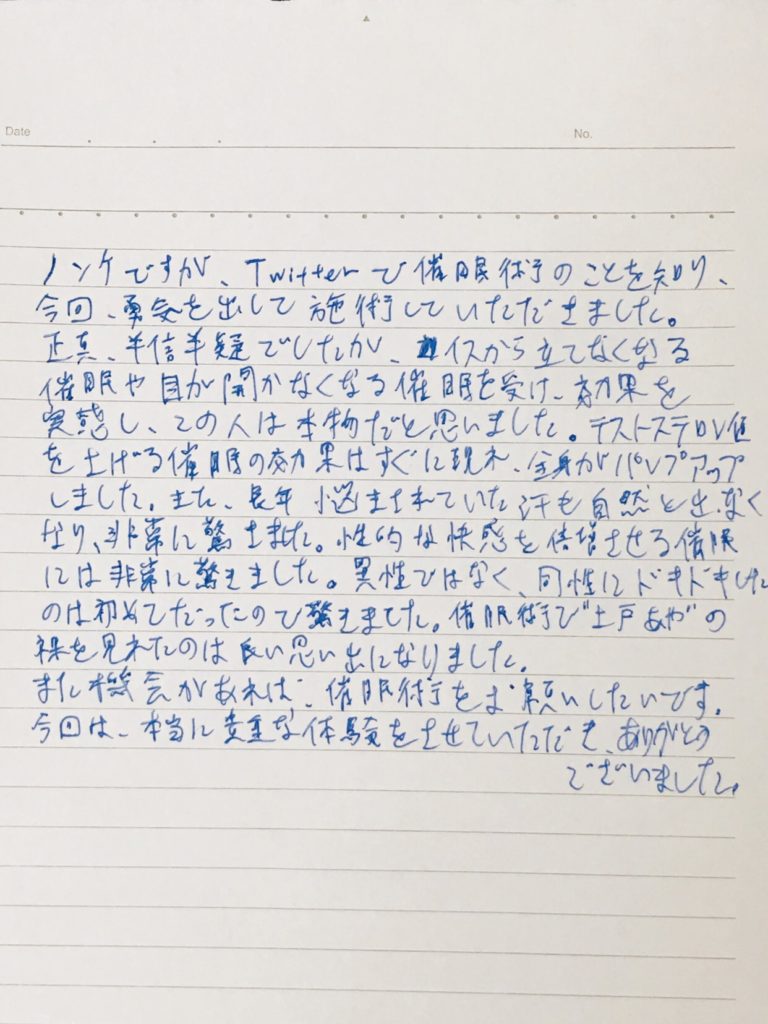 Date
No.
ノンケですが、Twitterで催眠術のことを知り、
今回、勇気を出して施術していただきました。
正真、半信半疑でしたが、イスから立てなくなる
催眠や目が開かなくなる催眠を受け、効果を
実感し、この人は本物だと思いました。テストステロン値
を上げる催眠の効果はすぐに現れ、全身がパンプアップ
しました。また、長年悩まされていた汗も自然と出なく
なり、非常に驚きました。性的な快感を倍増させる催眠
には非常に驚きました。異性ではなく、同性にドキドキした
のは初めてだったので驚きました。催眠術で"土戸あや"の
裸を見れたのは良い思い出になりました。
また機会があれば、催眠術をお願いしたいです。
今回は、本当に貴重な体験をさせていただき、ありがとう
ございました。